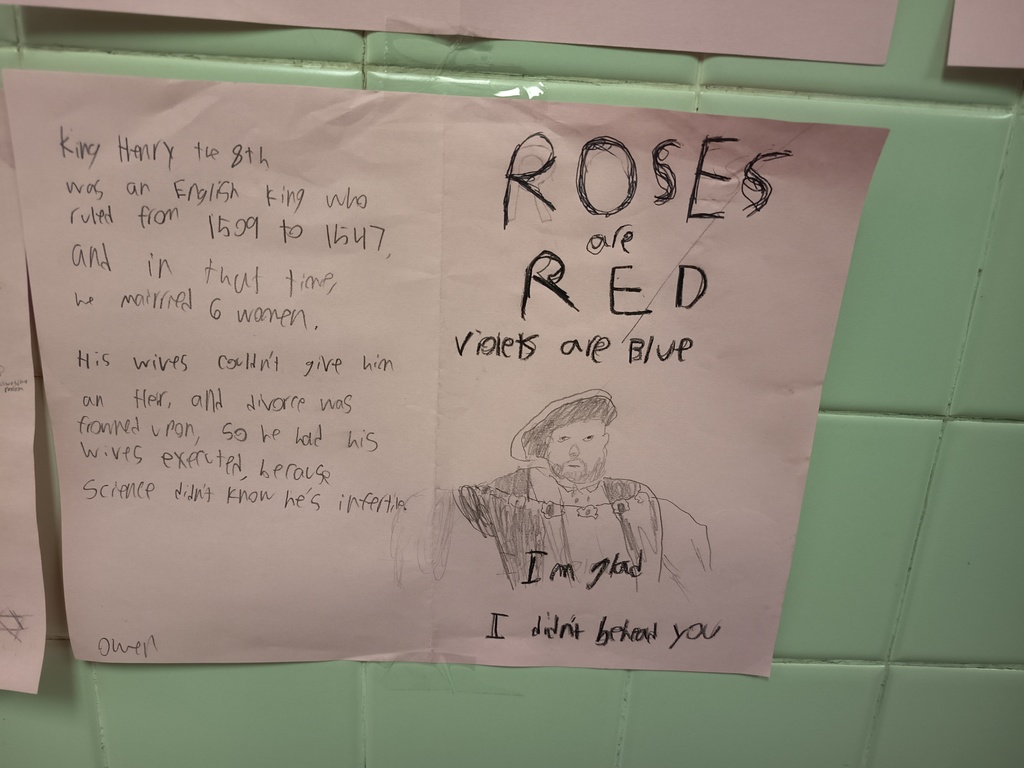 King Henry the 8th
was an English king who
ruled from 1509 to 1547,
and in that time,
he marrried 6 women.
His wives couldn't give him
an Heir, and divorce was
frowned upon, so he had his
wives executed, because
science didn't know he's infertile.
Owen
ROSES
are
RED
Violets are Blue
I'm glad
I didn't behead you